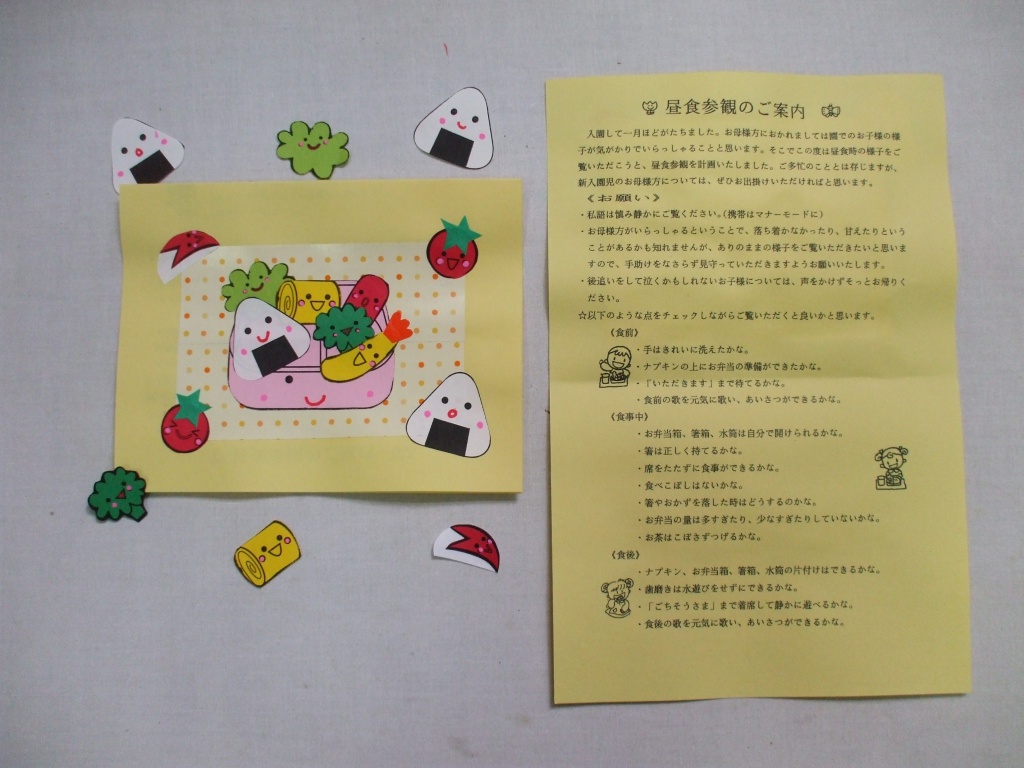 昼食参観のご案内
入園して一月ほどがたちました。お母様方におかれましては園でのお子様の様
子が気がかりでいらっしゃることと思います。そこでこの度は昼食時の様子をご
覧いただこうと、昼食参観を計画いたしました。ご多忙のこととは存じますが、
新入園児のお母様方については、ぜひお出掛けいただければと思います。
《お願い》
・私語は慎み静かにご覧ください。(携帯はマナーモードに)
・お母様方がいらっしゃるということで、落ち着かなかったり、甘えたりという
ことがあるかも知れませんが、ありのままの様子をご覧いただきたいと思いま
すので、手助けをなさらず見守っていただきますようお願いいたします。
・後追いをして泣くかもしれないお子様については、声をかけずそっとお帰りく
ださい。
☆以下のような点をチェックしながらご覧いただくと良いかと思います。
《食前》
・手はきれいに洗えたかな。
・ナプキンの上にお弁当の準備ができたかな。
・「いただきます」まで待てるかな。
・食前の歌を元気に歌い、あいさつができるかな。
《食事中》
・お弁当箱、箸箱、水筒は自分で開けられるかな。
・箸は正しく持てるかな。
・席をたたずに食事ができるかな。
・食べこぼしはないかな。
・箸やおかずを落した時はどうするのかな。
・お弁当の量は多すぎたり、少なすぎたりしていないかな。
・お茶はこぼさずつげるかな。
《食後》
・ナプキン、お弁当箱、箸箱、水筒の片付けはできるかな。
・歯磨きは水遊びをせずにできるかな。
・「ごちそうさま」まで着席して静かに遊べるかな。
・食後の歌を元気に歌い、あいさつができるかな。